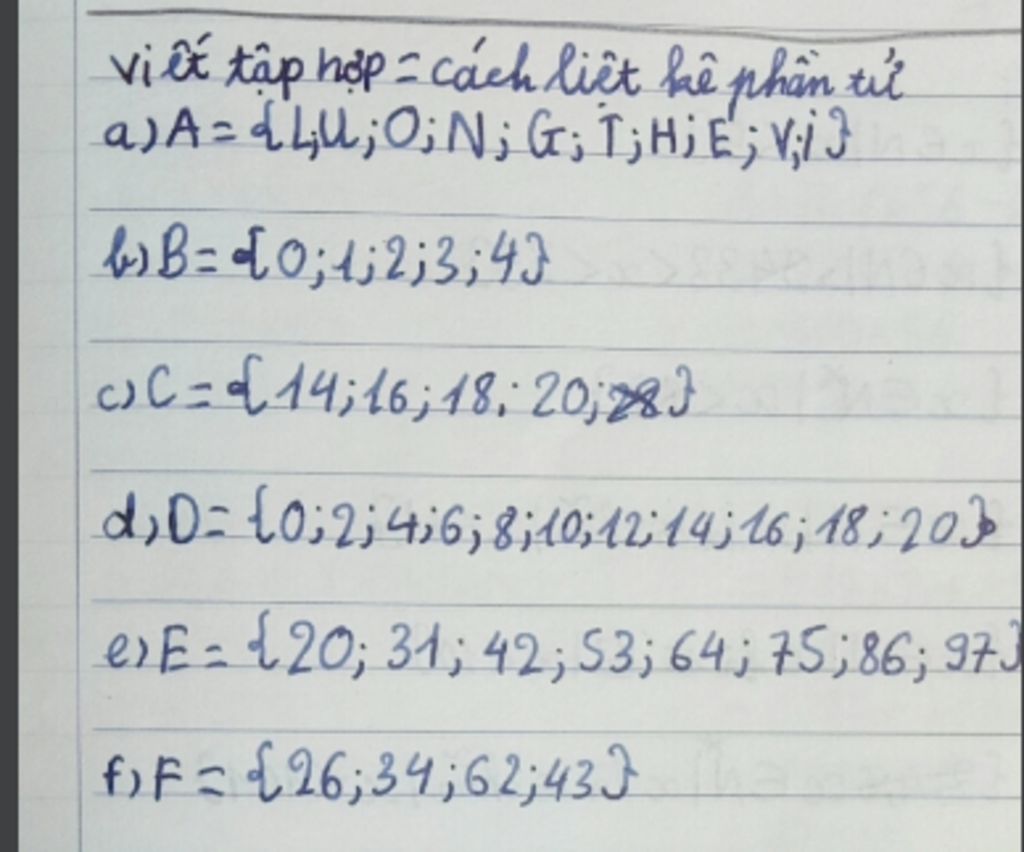 viết tập hợp = cách liệt kê phần tử
a) A = {L; U; O; N; G; T; H; E; V; i}
b) B = {0; 1; 2; 3; 4}
c) C = {14; 16; 18; 20; }
d) D = {0; 2; 4; 6; 8; 10; 12; 14; 16; 18; 20}
e) E = {20; 31; 42; 53; 64; 75; 86; 97}
f) F = {26; 34; 62; 43}